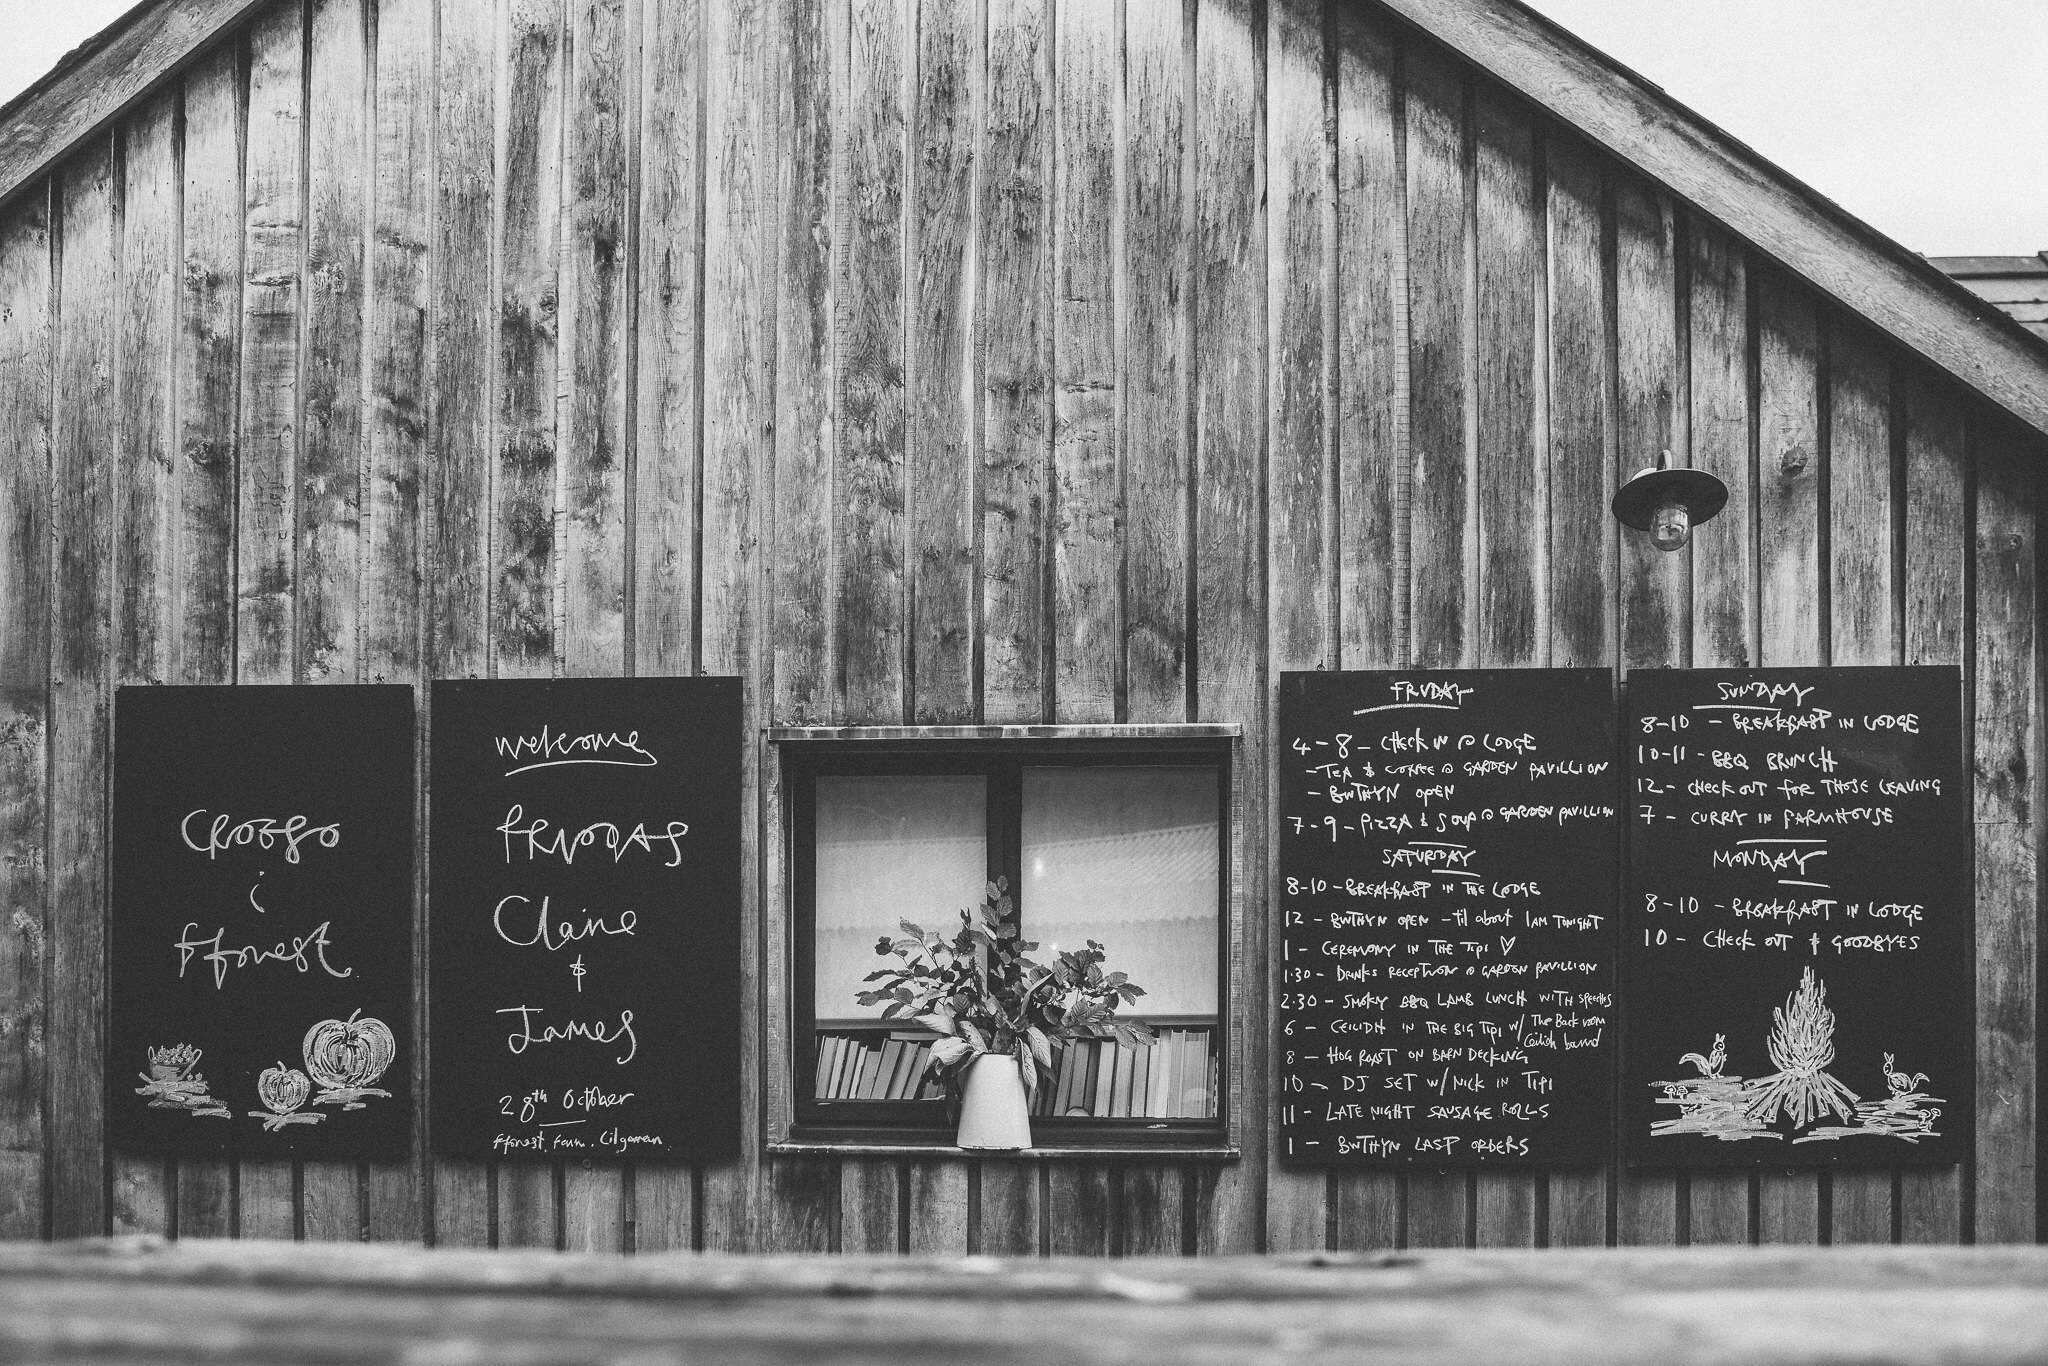 CROESO
i
fforest
welcome
PRIODAS
Claire
&
James
28th October
fforest farm. Cilgerran.
FRIDAY
4-8 - CHECK IN @ LODGE
- TEA & COFFEE @ GARDEN PAVILLION
- BWTHYN OPEN
7-9 - PIZZA & SOUP @ GARDEN PAVILLION
SATURDAY
8-10 - BREAKFAST IN THE LODGE
12 - BWTHYN OPEN - til about 1AM TONIGHT
1 - CEREMONY IN THE TIPI ♡
1.30 - DRINKS RECEPTION @ GARDEN PAVILLION
2.30 - SMOKY BBQ LAMB LUNCH WITH SPEECHES
6 - CEILIDH IN THE BIG TIPI w/ The Back room
Ceilidh band
8 - HOG ROAST ON BARN DECKING
10 - DJ SET w/ NICK IN TIPI
11 - LATE NIGHT SAUSAGE ROLLS
1 - BWTHYN LAST ORDERS
SUNDAY
8-10 - BREAKFAST IN LODGE
10-11 - BBQ BRUNCH
12 - CHECK OUT FOR THOSE LEAVING
7 - CURRY IN FARMHOUSE
MONDAY
8-10 - BREAKFAST IN LODGE
10 - CHECK OUT & GOODBYES